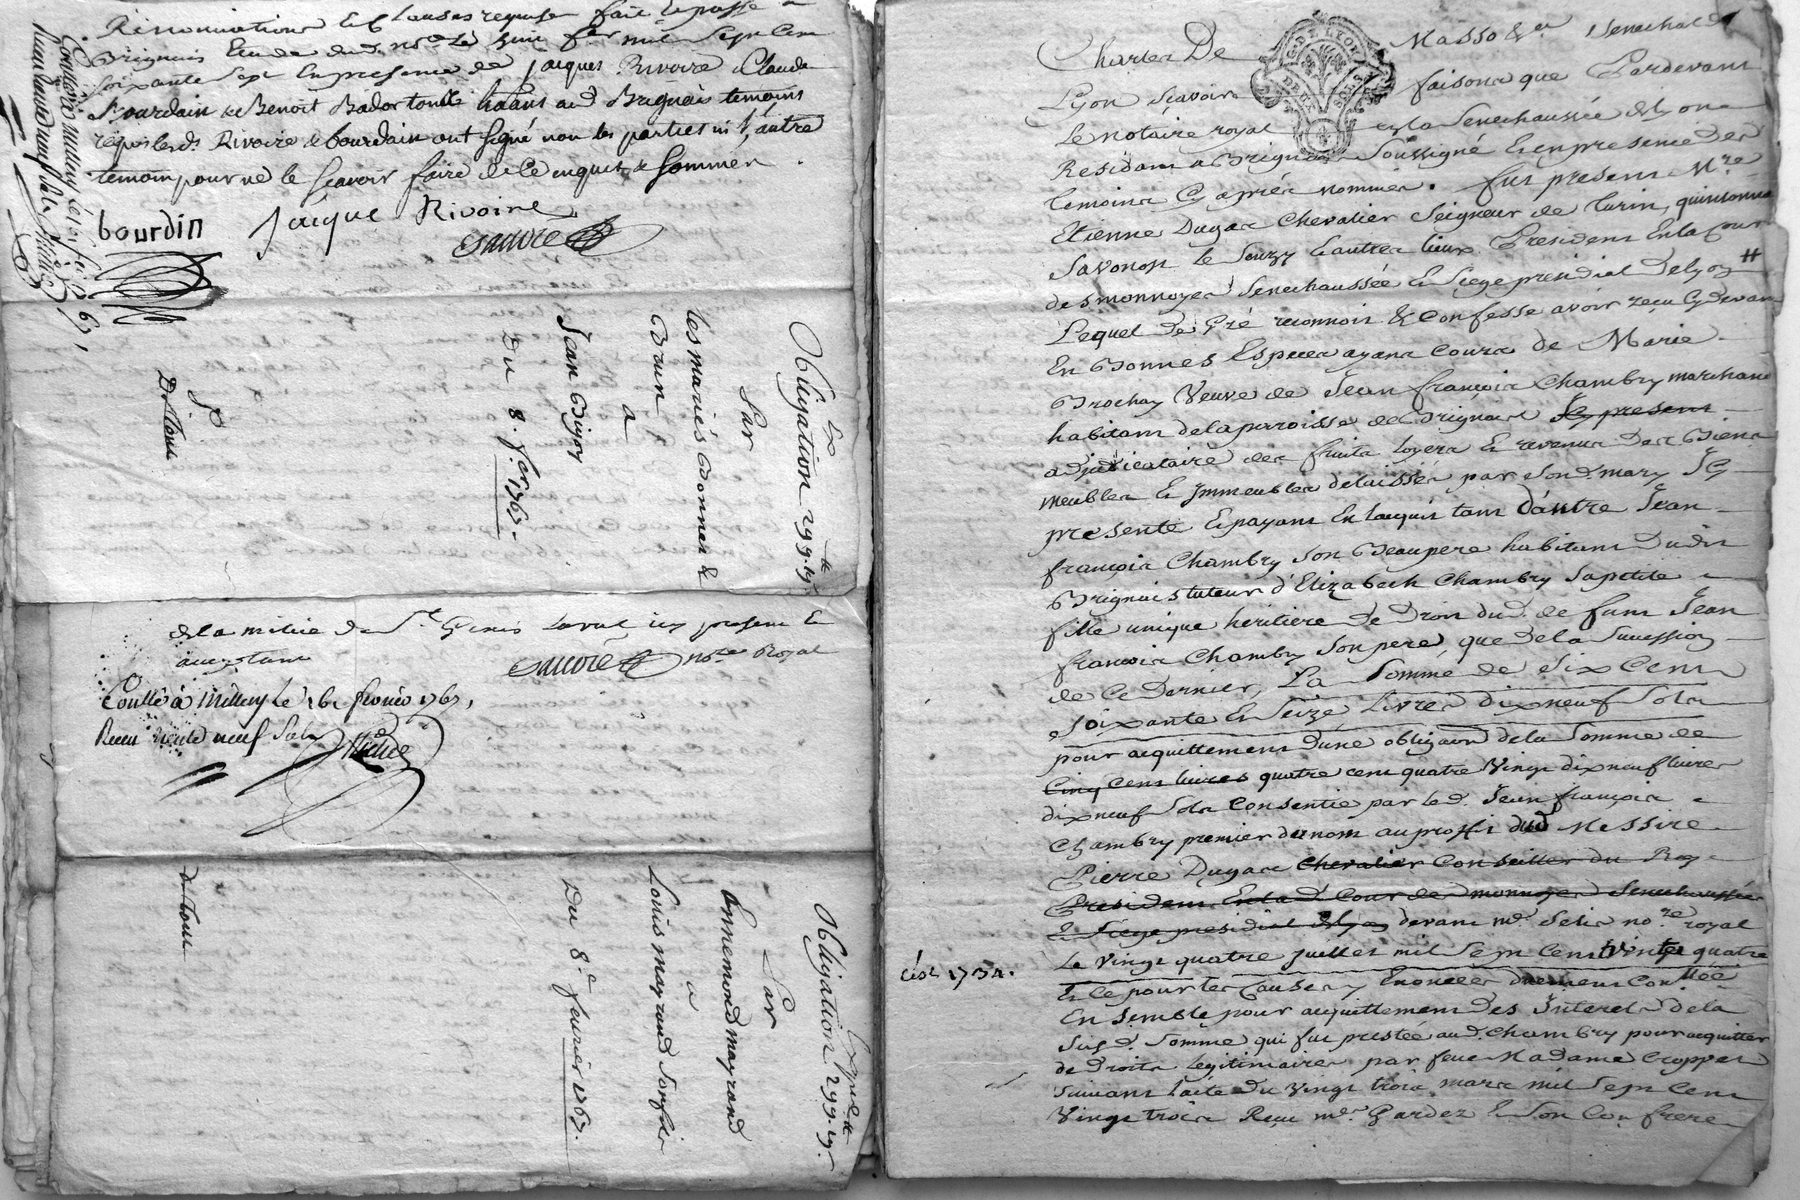 Renonciations & Clauses requises fait & passé a
Brignais Etude dud. no.re le huit fer mil Sept Cent
Soixante Sept En presence de Jacques Rivoire Claude
Bourdain & Benoit Bador tous habitans aud Brignais temoins
requis lesds Rivoire & bourdain ont signé non les parties ni l'autre
temoin pour ne le sçavoir faire de ce enquis & sommés.
bourdin Jacque Rivoire
Sauvoré
Controllé a Millery le 16 fer 1767,
Reçu trente neuf sols
Obligation 299.tt 19s
Par
les mariés Bonnet &
Brun
a
Jean Bijon
Du 8. fer 1767.
de la milice de St Genis Laval icy present &
acceptant
Sauvoré no.re Royal
Contllé à Millery le 16 fevrier 1767,
Recu trente neuf sols
Obligation 299.tt 19s
Par
Ennemond mayrand
a
Louis mayrand son fils
Du 8.e fevrier 1767.
Charles De Masso &a Senechal de
G.D.LYON
DEUX SOLS
Lyon sçavoir faisons que Pardevant
Le notaire royal en la Senechaussée de Lyon
Residant a Brignais Soussigné & en presence des
temoins Cy après nommés. fut present M.re
Etienne Dugas Chevalier Seigneur de Turin, quinsonnas
Savonost le Souzy & autres lieux President En la Cour
des monnoyes Senechaussée & Siege presidial de Lyon #
Lequel de Gré reconnoit & Confesse avoir reçu Cy devant
En Bonnes Especes ayant Cours de Marie
Brochay Veuve de Jean françois Chambry marchand
habitant de la parroisse de Brignais Icy present
adjudicataire des fruits loyers & revenus des Biens
meubles & Immeubles delaissés par Son d. mary Icy
presente & payant En l'acquit tant d'autre Jean
françois Chambry Son Beaupere habitant Dudit
Brignais tuteur d'Elizabeth Chambry Sa petite
fille unique héritiere de droit dud. de funt Jean
françois Chambry Son pere, que de la Succession
de Ce Dernier, La Somme de Six Cent
Soixante & Seize Livres dix neuf Sols
pour acquittement d'une obligaon de la Somme de
Cinq Cent livres quatre cent quatre Vingt dix neuf livres
dix neuf Sols Consentie par led. Jean françois
Chambry premier du nom au proffit dud Messire
Pierre Dugas Chevalier Conseiller du Roy
President En lad Cour des monnoyes Senechaussée
& Siege presidial de Lyon devant me no.re royal
Le Vingt quatre juillet mil Sept Cent trente quatre
& Ce pour les Causes y Enoncées duement Contllée
En Semble pour acquittement des Interets de la
Susd. Somme qui fut prestée aud. Chambry pour acquitter
de droits legitimaires par feue Madame Croppet
Suivant l'acte du Vingt trois mars mil Sept Cent
Vingt trois Reçu me Gardez & Son Confrere
c'est 1734.